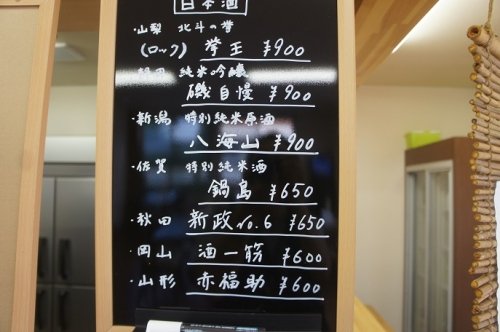 日本酒
・山梨 北斗の拳
(ロック) 拳王 ¥900
純米吟醸
磯自慢 ¥900
・新潟 特別純米原酒
八海山 ¥900
・佐賀 特別純米酒
鍋島 ¥650
・秋田 新政no.6 ¥650
・岡山 酒一筋 ¥600
・山形 赤福助 ¥600